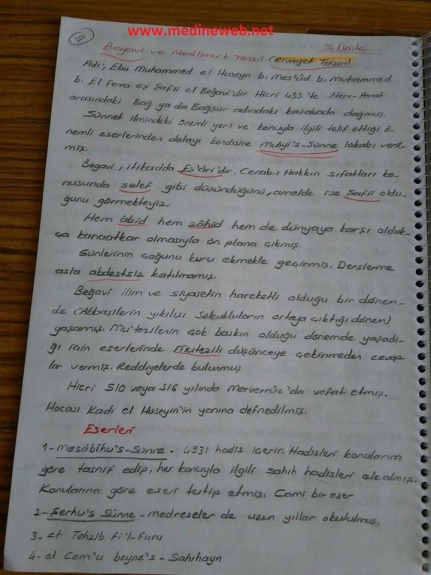 www.medineweb.net
5. Ünite
Begavi ve Mealimu't Tenzil (Rivayet Tefsiri)
Adı, Ebu Muhammed el Huseyn b. Mes'ûd b. Muhammed
b. El Fera eş Şafii el Beğavi'dir. Hicri 433'te Merv-Herat
arasındaki Bağ ya da Bağşur adındaki kasabada doğmuş.
Sünnet ilmindeki önemli yeri ve konuyla ilgili telif ettiği ö-
nemli eserlerinden dolayı kendisine Muhyi's-Sünne lakabı veril-
miş.
Begavi, itikadda Eş'âri'dir. Cenabı Hakkın sıfatları ko-
nusunda selef gibi düşündüğünü, amelde ise Şafii oldu-
ğunu görmekteyiz.
Hem âbid hem zâhid hem de dünyaya karşı olduk-
ça kanaatkar olmasıyla ön plana çıkmış.
Günlerinin çoğunu kuru ekmekle geçirmiş. Derslerine
asla abdestsiz katılmamış.
Beğavi ilim ve siyasetin hareketli olduğu bir dönem-
de (Abbasilerin yıkılışı Selçukluların ortaya çıktığı dönem)
yaşamış. Mu'tezilenin çok baskın olduğu dönemde yaşadı-
ğı için eserlerinde Mutezili düşünceye çekinmeden cevap-
lar vermiş. Reddiyelerde bulunmuş
Hicri 510 veya 516 yılında Merverrûz'da vefat etmiş.
Hocası Kadi el Huseyin'in yanına defnedilmiş.
Eserleri
1- Mesâbîhu's-Sünne - 4931 hadis içerir. Hadisleri konularına
göre tasnif edip, her konuyla ilgili sahih hadisleri ele almış.
Konularına göre eseri tertip etmiş. Cami bir eser
2- Şerhu's Sünne - medreseler de uzun yıllar okutulmuş.
3- et Tehzib fi'l-Furu
4- el Cem'u beyne's - Sahihayn